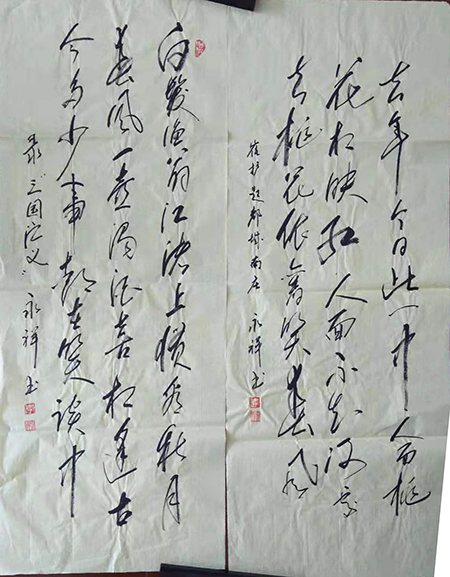 去年今日此门中人面桃
花相映红人面不知何处
去桃花依舊笑春风
崔护题都城南庄 永祥书
白髮渔翁江渚上惯看秋月
春风一壶浊酒喜相逢古
今多少事都在笑谈中
录“三国演义” 永祥书